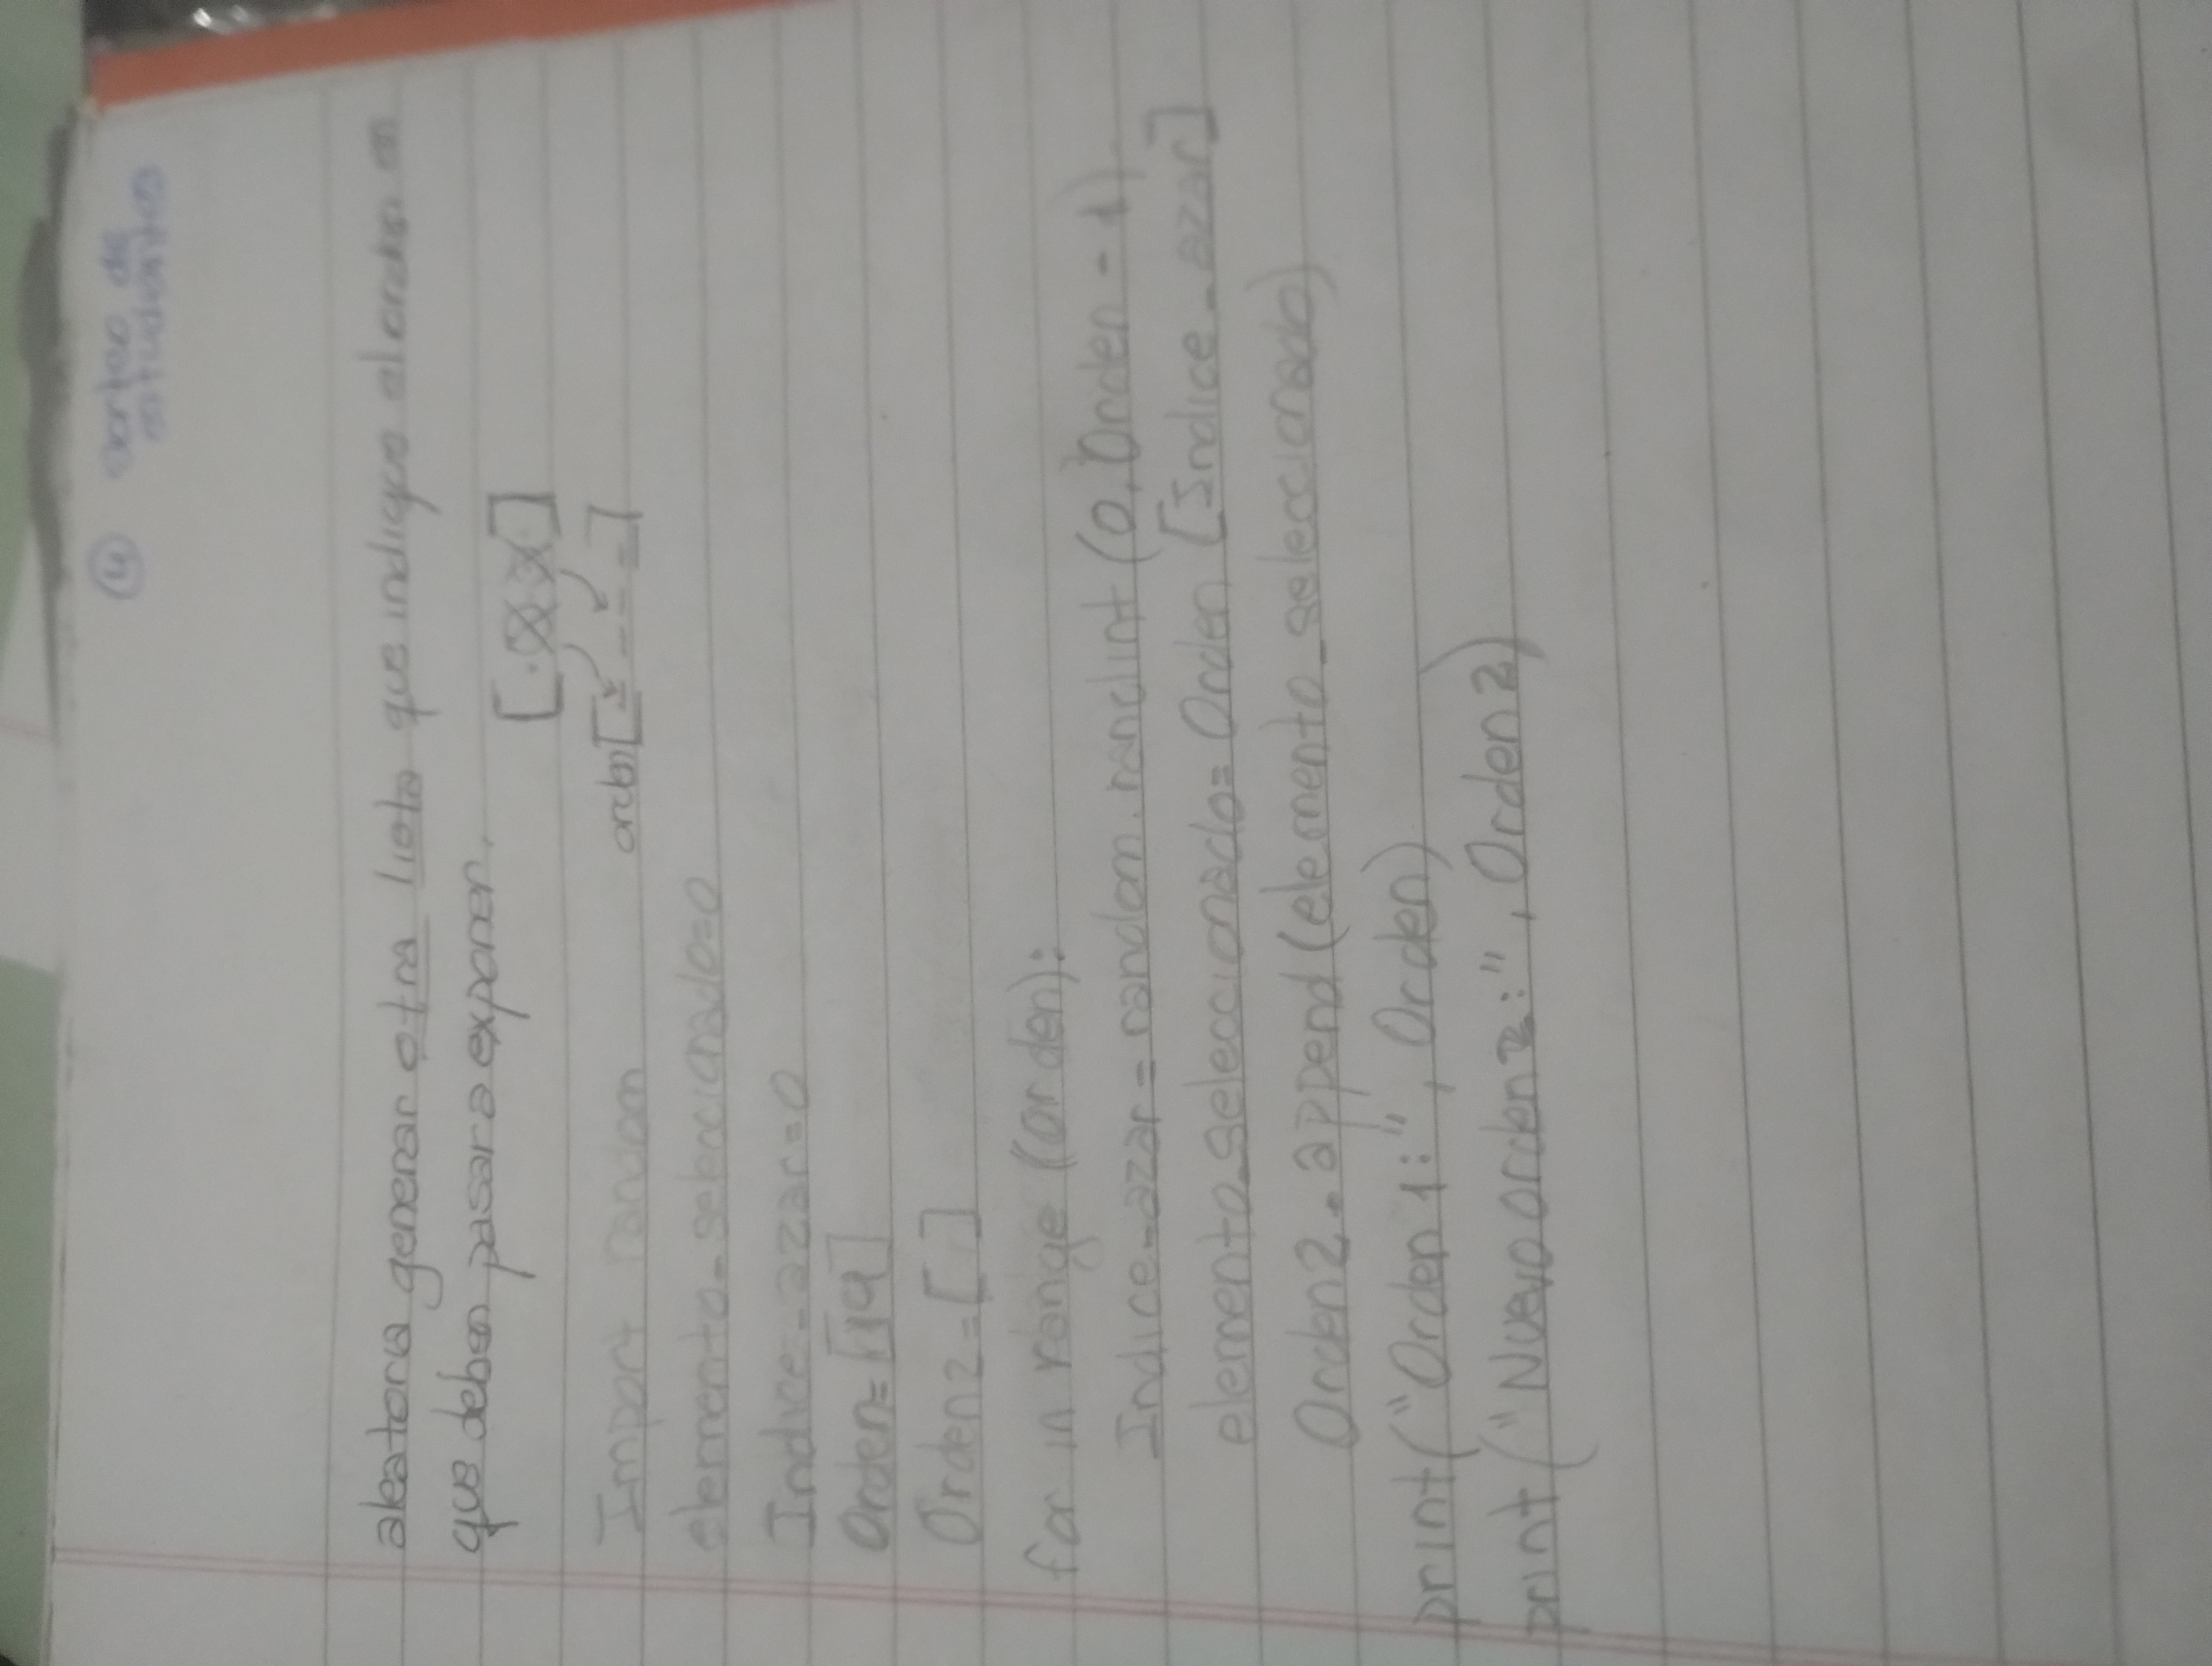 ④ Sorteo de
estudiantes
aleatoria generar otra lista que indique el orden en
que deben pasar a exponer.
[. x x]
orden [- - - -]
Import random
elemento_seleccionado=0
Indice_azar=0
Orden=[19]
Orden2=[ ]
for in range (orden):
Indice_azar=random.randint (0, Orden - 1)
elemento_seleccionado= Orden [Indice_azar]
Orden2.append(elemento_seleccionado)
print("Orden 1:", Orden)
print("Nuevo orden 2:", Orden2)